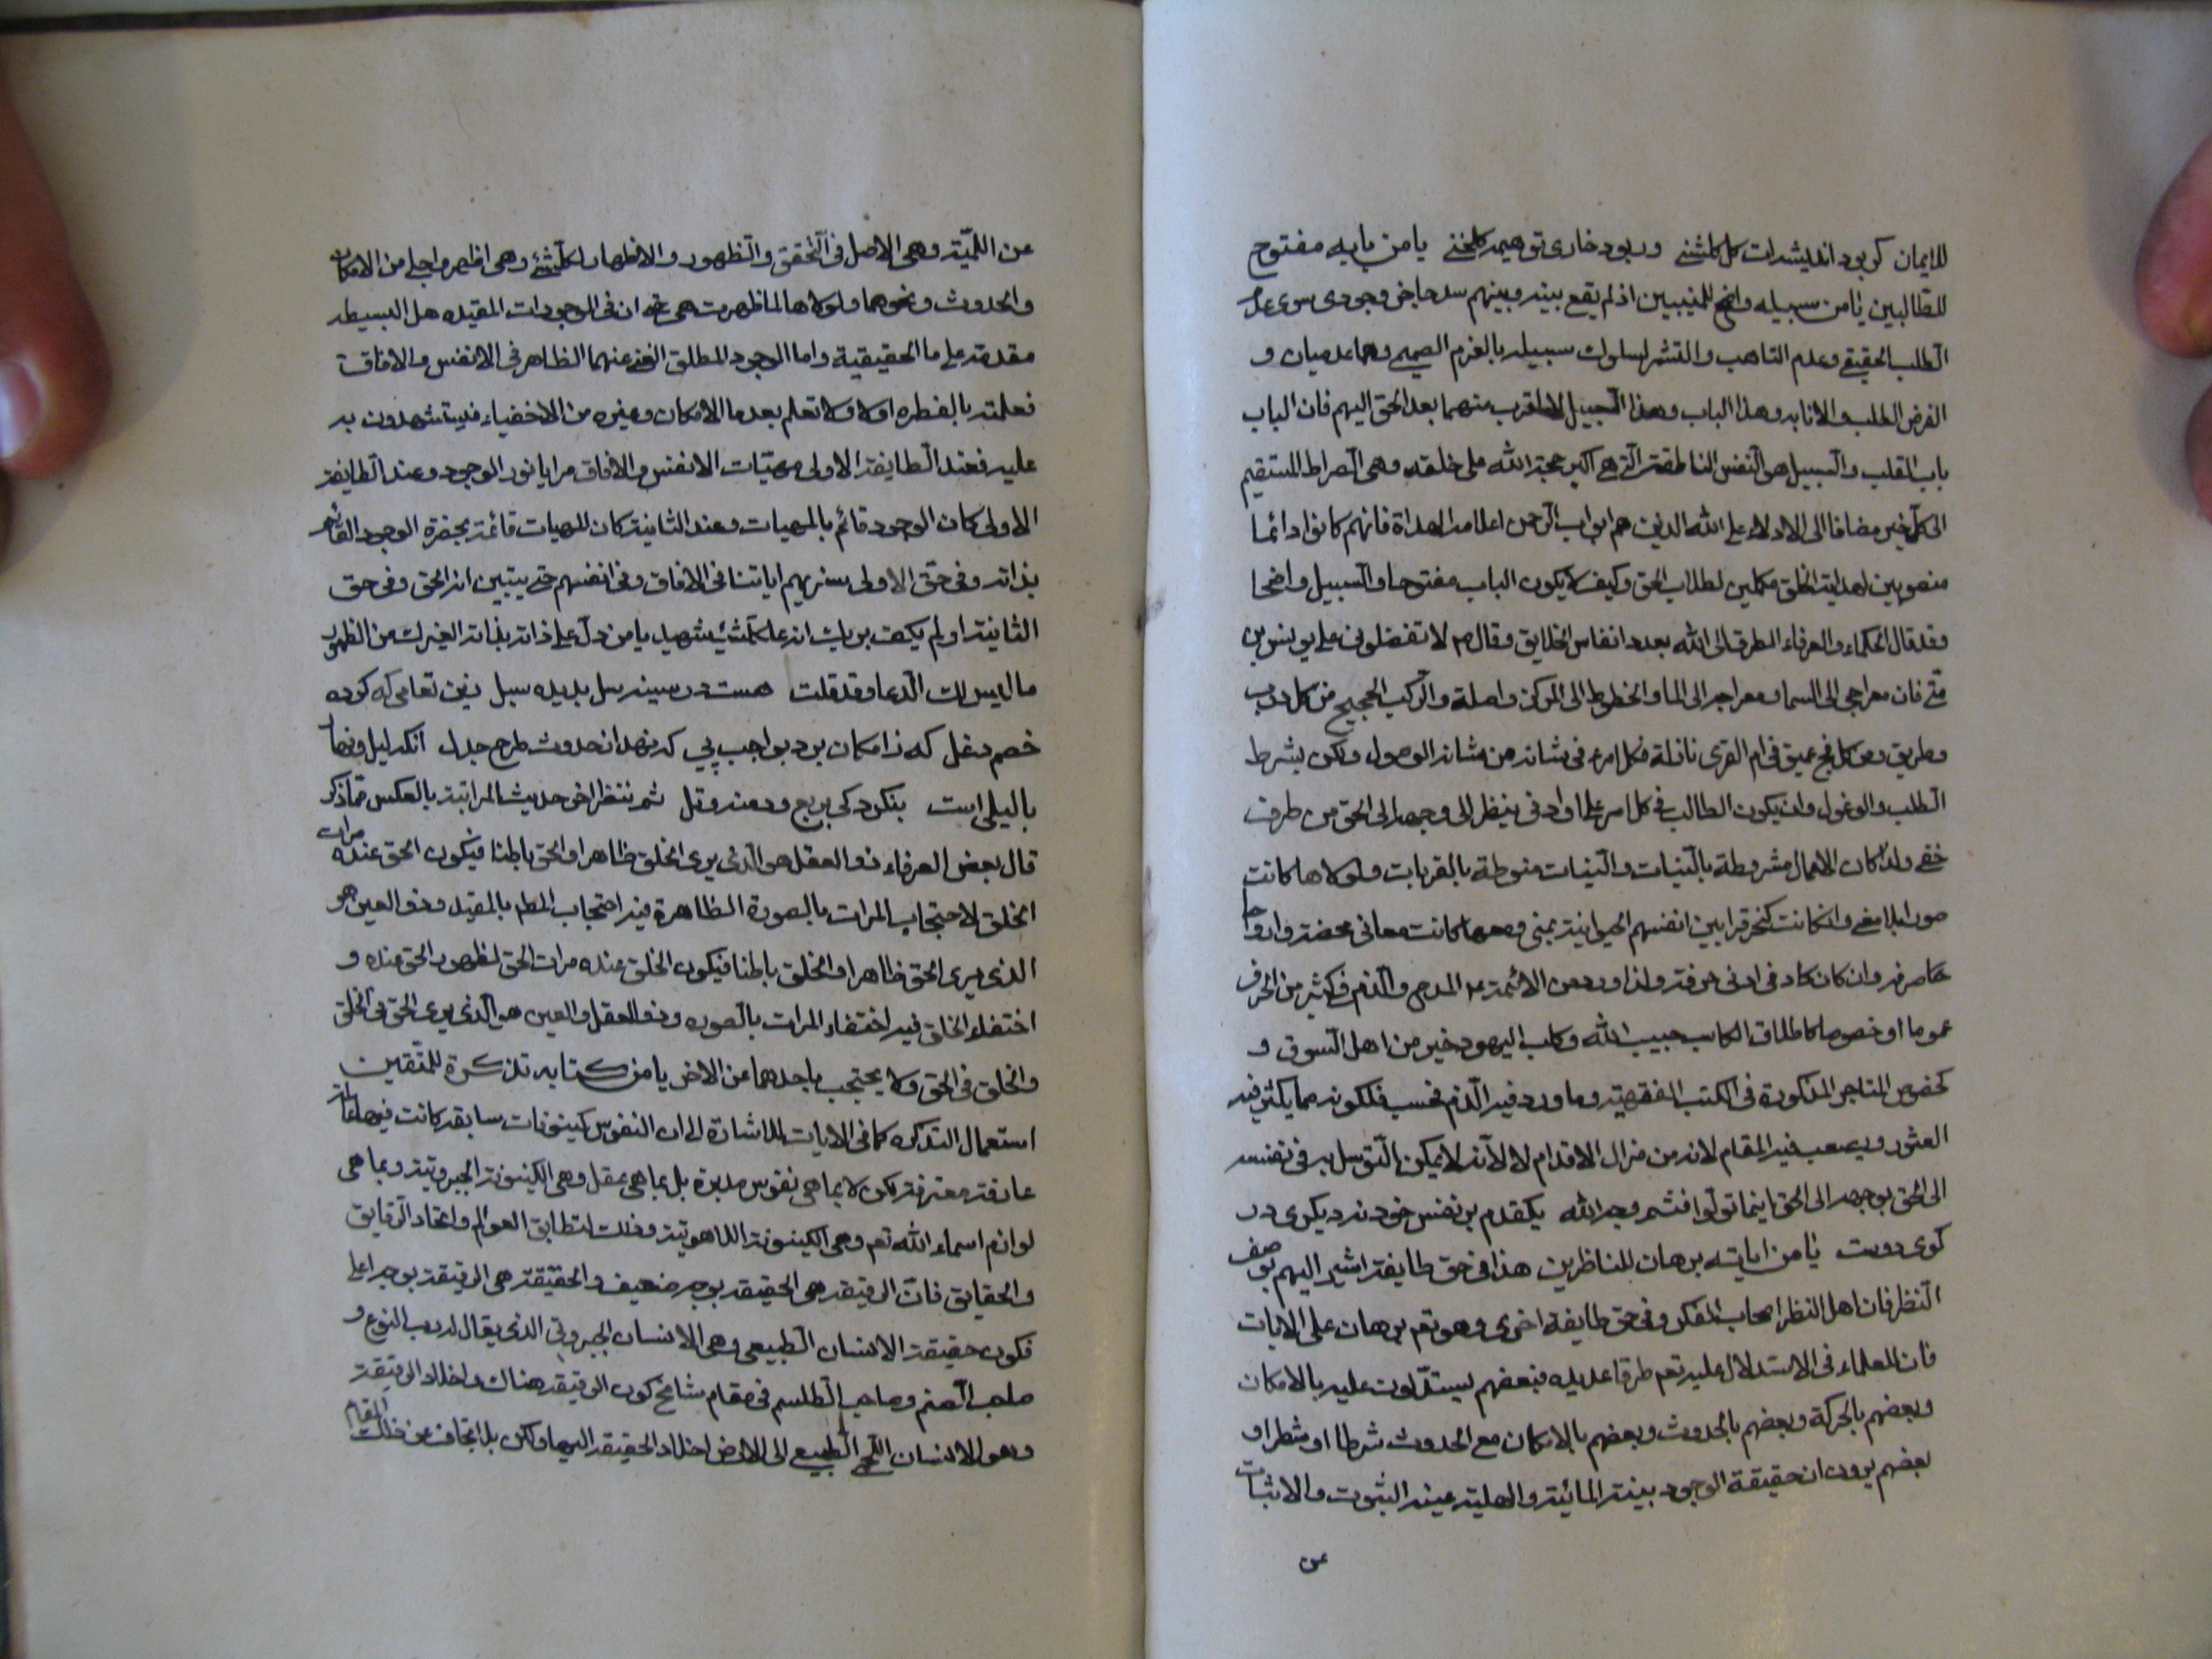 للايمان كر بود انديشه‌ات كل كلشنى ور بود خارى تو هيمه كلخنى يا من بابه مفتوح
للطالبين يا من سبيله واضح للمنيبين اذ لم يقع بينه وبينهم سد حاجز وجودى سوى عدم
الطلب الحقيقى وعدم التاهب والتشمر لسلوك سبيله بالعزم الصميم وهما عدميان و
الفرض الطلب والانابه وهذا الباب وهذا السبيل لا اقرب منهما بعد الحق اليهم فان الباب
باب القلب والسبيل هو النفس الناطقة التى هى اكبر حجة الله على خلقه وهى الصراط المستقيم
الى كل خير مضافا الى الادلاء على الله الذين هم ابواب الرحمن اعلامه الهداة فانهم كانوا دائما
منصوبين لهداية الخلق مكملين لطلاب الحق وكيف لا يكون الباب مفتوحا والسبيل واضحا
وقد قال الحكماء والعرفاء الطرق الى الله بعدد انفاس الخلايق وقال ص لا تفضلونى على يونس بن
متى فان معراجى الى السما ومعراجه الى الما والخطوط الى المركز واصلة والركب الحجيج من كل درب
وطريق ومن كل فج عميق فى ام القرى نازلة فكل امرء فى شانه من شانه الوصول ولكن بشرط
الطلب والوغول وان يكون الطالب فى كل امر على او دنى ينظر الى وجهه الى الحق من طرف
خفى ولذا كان الاعمال مشروطة بالنيات والنيات منوطة بالقربات ولولاها كانت
صورا بلا معنى وان كانت كنحر قرابين انفسهم الحيوانية بمنى ومعها كانت معانى محضة وارواحا
صرفه وان كان كاد فى ادنى حرفته ولذا ورد من الائمة ع المدح والذم فى كثير من الحرف
عموما او خصوصا كاطلاق الكاسب حبيب الله وكلب اليهود خير من اهل السوق و
كخصوص المتاجر المذكورة فى الكتب الفقهية وما ورد فيه الذم فحسب فلكونه مما يكثر فيه
العثور ويصعب فيه المقام لانه من مزال الاقدام لا لانه لا يمكن التوسل به فى نفسه
الى الحق بوجهه الى الحق اينما تولوا فثم وجه الله يكقدم بر نفس خود نه ديكرى در
كوى دوست يا من اياته برهان للناظرين هذا فى حق طايفة اشير اليهم بوصف
النظر فان اهل النظر اصحاب الفكر وفى حق طايفة اخرى وهو تعم برهان على الايات
فان للعلماء فى الاستدلال عليه تعم طرقا عديده فبعضهم يستدلون عليه بالامكان
وبعضهم بالحركة وبعضهم بالحدوث وبعضهم بالامكان مع الحدوث شرطا او شطرا و
بعضهم يرون ان حقيقة الوجود بينة المائية والهلية عينه الثبوت والاثبات
عن
عن اللمية وهى الاصل فى التحقق والظهور والاظهار لكلشئ وهى اظهر واجلى من الامكان
والحدوث ونحوهما ولولاها لما ظهرت هى نحو ان فى الوجودات المقيده هل البسيطه
مقدمة على ما الحقيقية واما الوجود المطلق الغنى عنهما الظاهر فى الانفس والافاق
فعلمته بالفطره اولا ولا تعلم بعد ما الامكان وغيره من الاخفياء فيستشهدون به
عليه فعند الطايفة الاولى مهيات الانفس والافاق مرايا نور الوجود وعند الطايفة
الاولى كان الوجود قائم بالمهيات وعند الثانية كان المهيات قائمة بحضرة الوجود القائم
بذاته وفى حق الاولى سنريهم اياتنا فى الافاق وفى انفسهم حتى يتبين انه الحق وفى حق
الثانية اولم يكف بربك انه على كلشئ شهيد يا من دل على ذاته بذاته الغيرك من الظهور
ما ليس لك الدعا وقد قلت هست در سينه سل بديده سبل زين تعامى كه كرده
خصم دغل كه ز امكان برد بواجب پى كه نهد از حدوث طرح جدل آنكه ليل ونهار
با ليلى است بنكرد كى بربع ودمنه وتل ثم ننظر اخر حديث المراتية بالعكس مما ذكر
قال بعض العرفاء ذو العقل هو الذى يرى الخلق ظاهرا والحق باطنا فيكون الحق عنده مرات
الخلق لاحتجاب المرات بالصورة الظاهرة فيه احتجاب المطلق بالمقيد وذو العين هو
الذى يرى الحق ظاهرا والخلق باطنا فيكون الخلق عنده مرات الحق لظهور الحق عنده و
اختفاء الخلق فيه اختفاء المرات بالصوره وذو العقل والعين هو الذى يرى الحق فى الخلق
والخلق فى الحق ولا يحتجب باحدهما عن الاخر يا من كتابه تذكرة للمتقين
استعمال التذكره كما فى الايات للاشارة الى ان النفوس كينونات سابقه كانت فيها عالمة
عارفة معترفة لكن لا بما هى نفوس مدبرة بل بما هى عقل وهى الكينونة الجبروتية وبما هى
لوازم اسماء الله تعم وهى الكينونة اللاهوتية وذلك لتطابق العوالم واتحاد الرقايق
والحقايق فان الرقيقه هى الحقيقه بوجه ضعيف والحقيقة هى الرقيقة بوجه اعلى
فكون حقيقة الانسان الطبيعى وهى الانسان الجبروتى الذى يقال له رب النوع و
صاحب الصنم وصاحب الطلسم فى مقام شامخ كون الرقيقه هناك واخلاد الرقيقة
وهو الانسان الطبيعى الى الارض اخلاد الحقيقه اليها ولكن بلا تجاف عن ذلك المقام